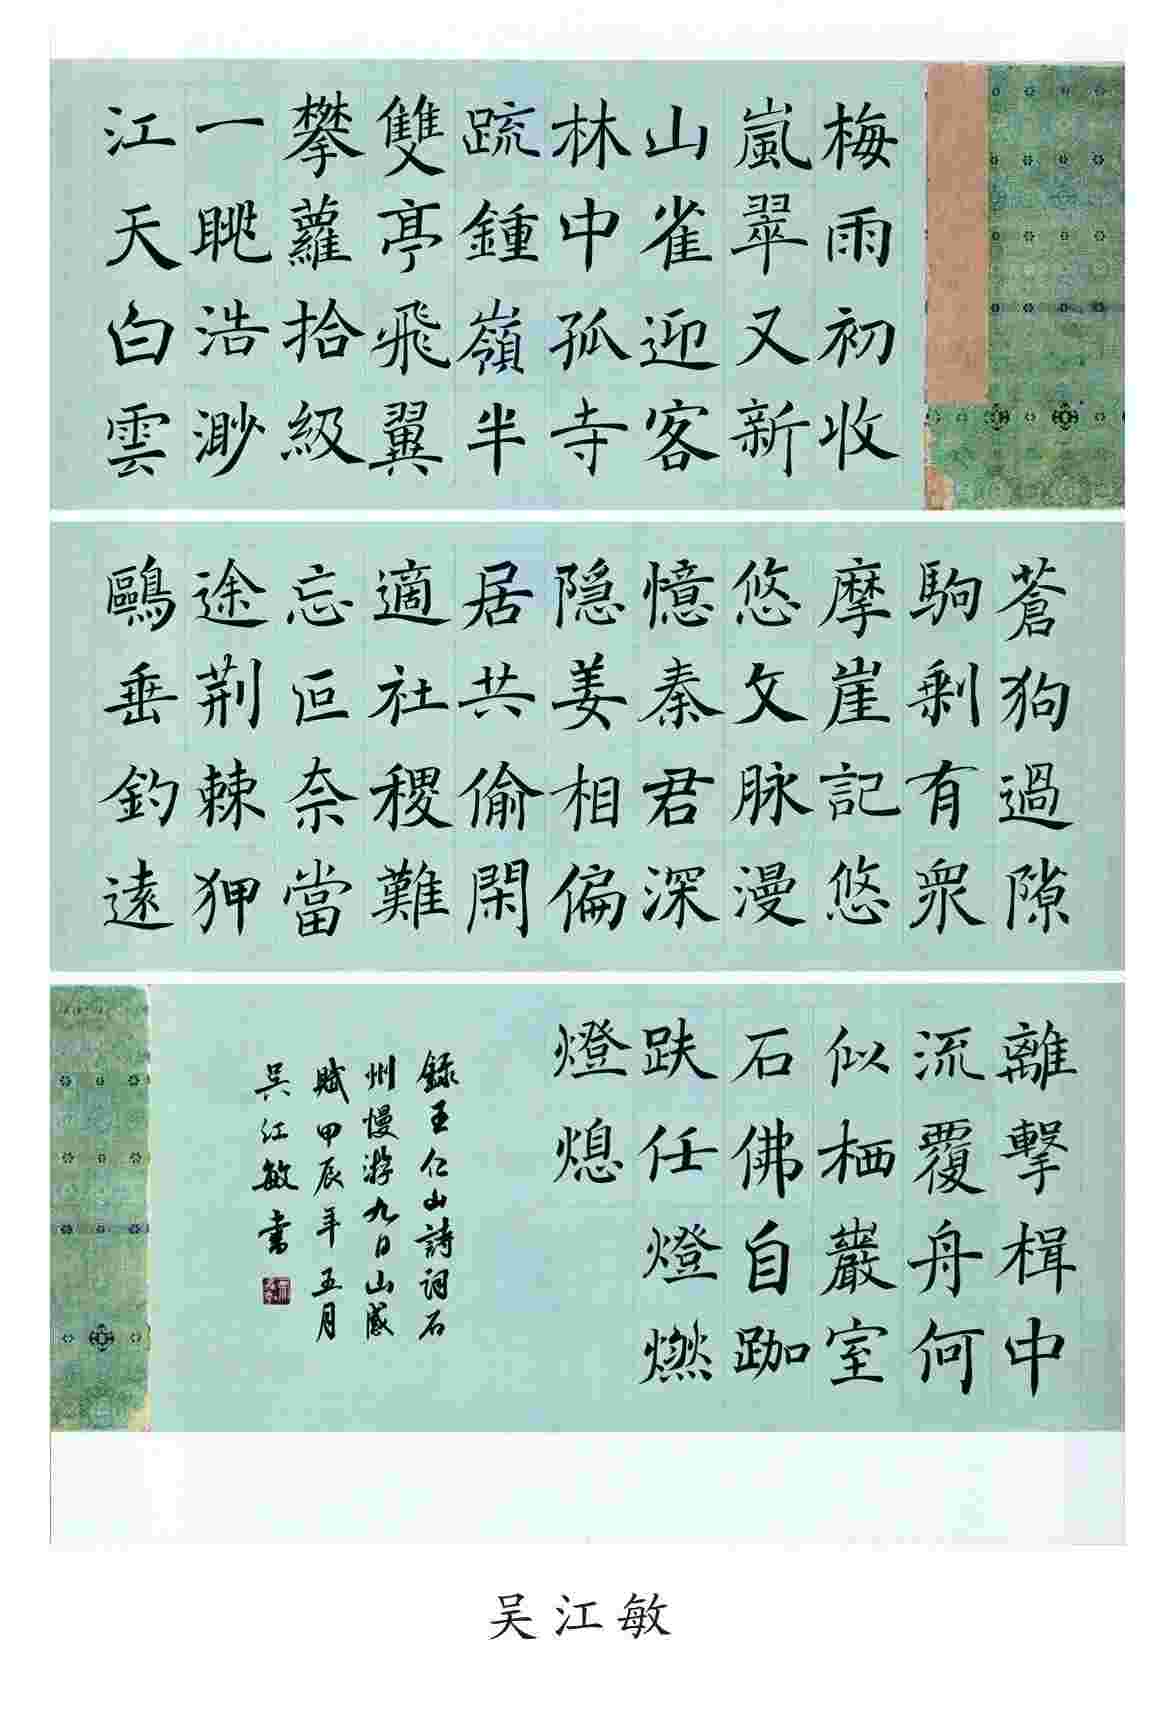 梅雨初收
嵐翠又新
山雀迎客
林中孤寺
疏鍾嶺半
雙亭飛翼
攀蘿拾級
一眺浩渺
江天白雲
蒼狗過隙
駒剩有衆
摩崖記悠
悠文脉漫
憶秦君深
隐姜相偏
居共偷閑
適社稷難
忘叵奈當
途荆棘狎
鷗垂釣遠
離擊楫中
流覆舟何
似栖巖室
石佛自跏
趺任燈燃
燈熄
錄王仁山詩詞石
州慢游九日山感
賦甲辰年五月
吴江敏書
吴江敏